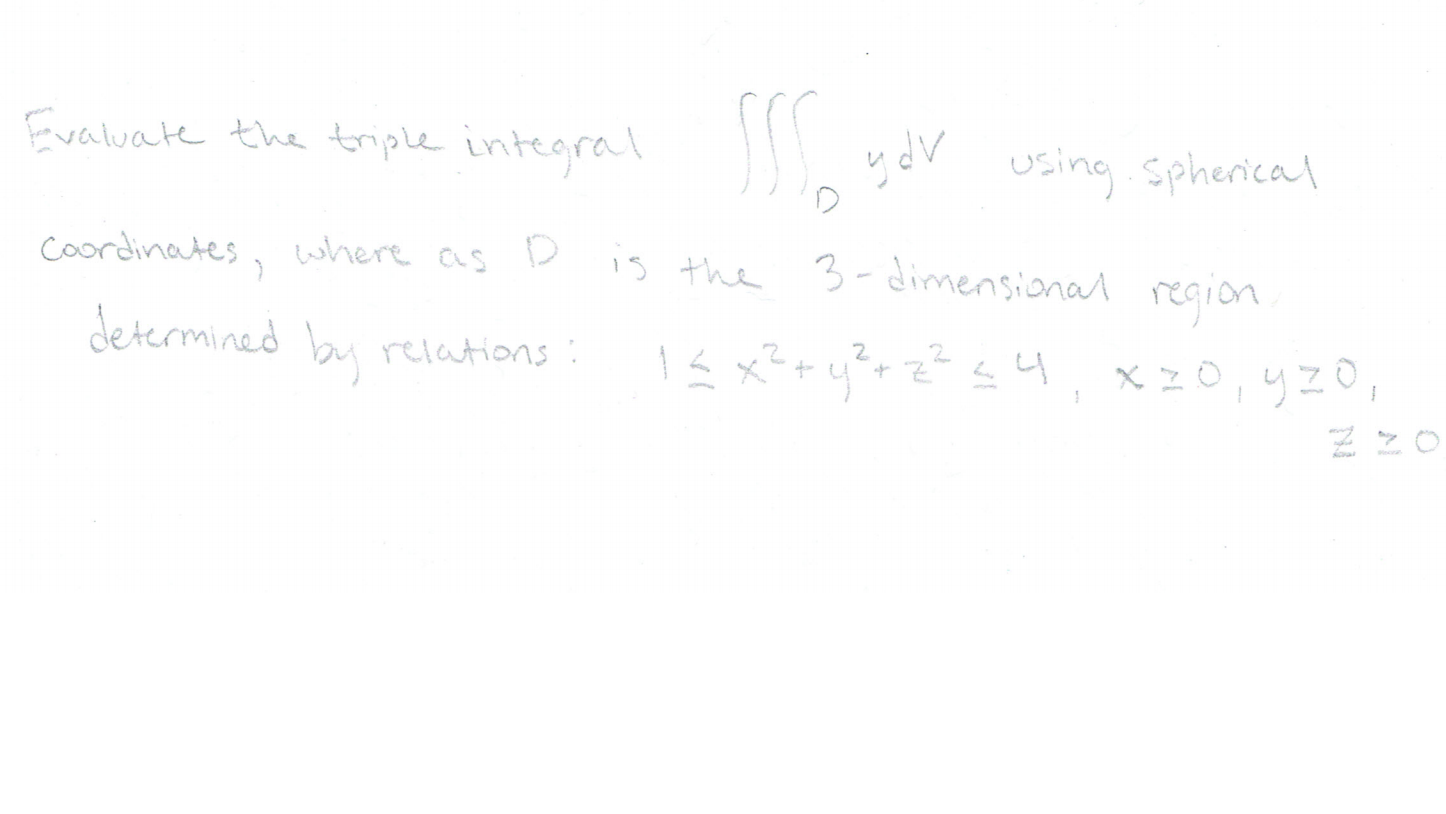 Evaluate the triple integral ∭_D y dV using spherical
coordinates, where as D is the 3-dimensional region
determined by relations: 1 ≤ x² + y² + z² ≤ 4, x ≥ 0, y ≥ 0,
z ≥ 0